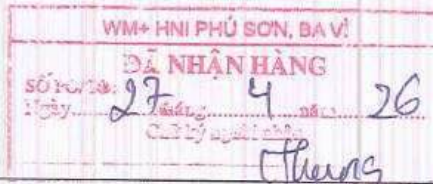 WM+ HNI PHÚ SƠN, BA VÌ
ĐÃ NHẬN HÀNG
Ngày 27 tháng 4 năm 26
Chữ ký người nhận